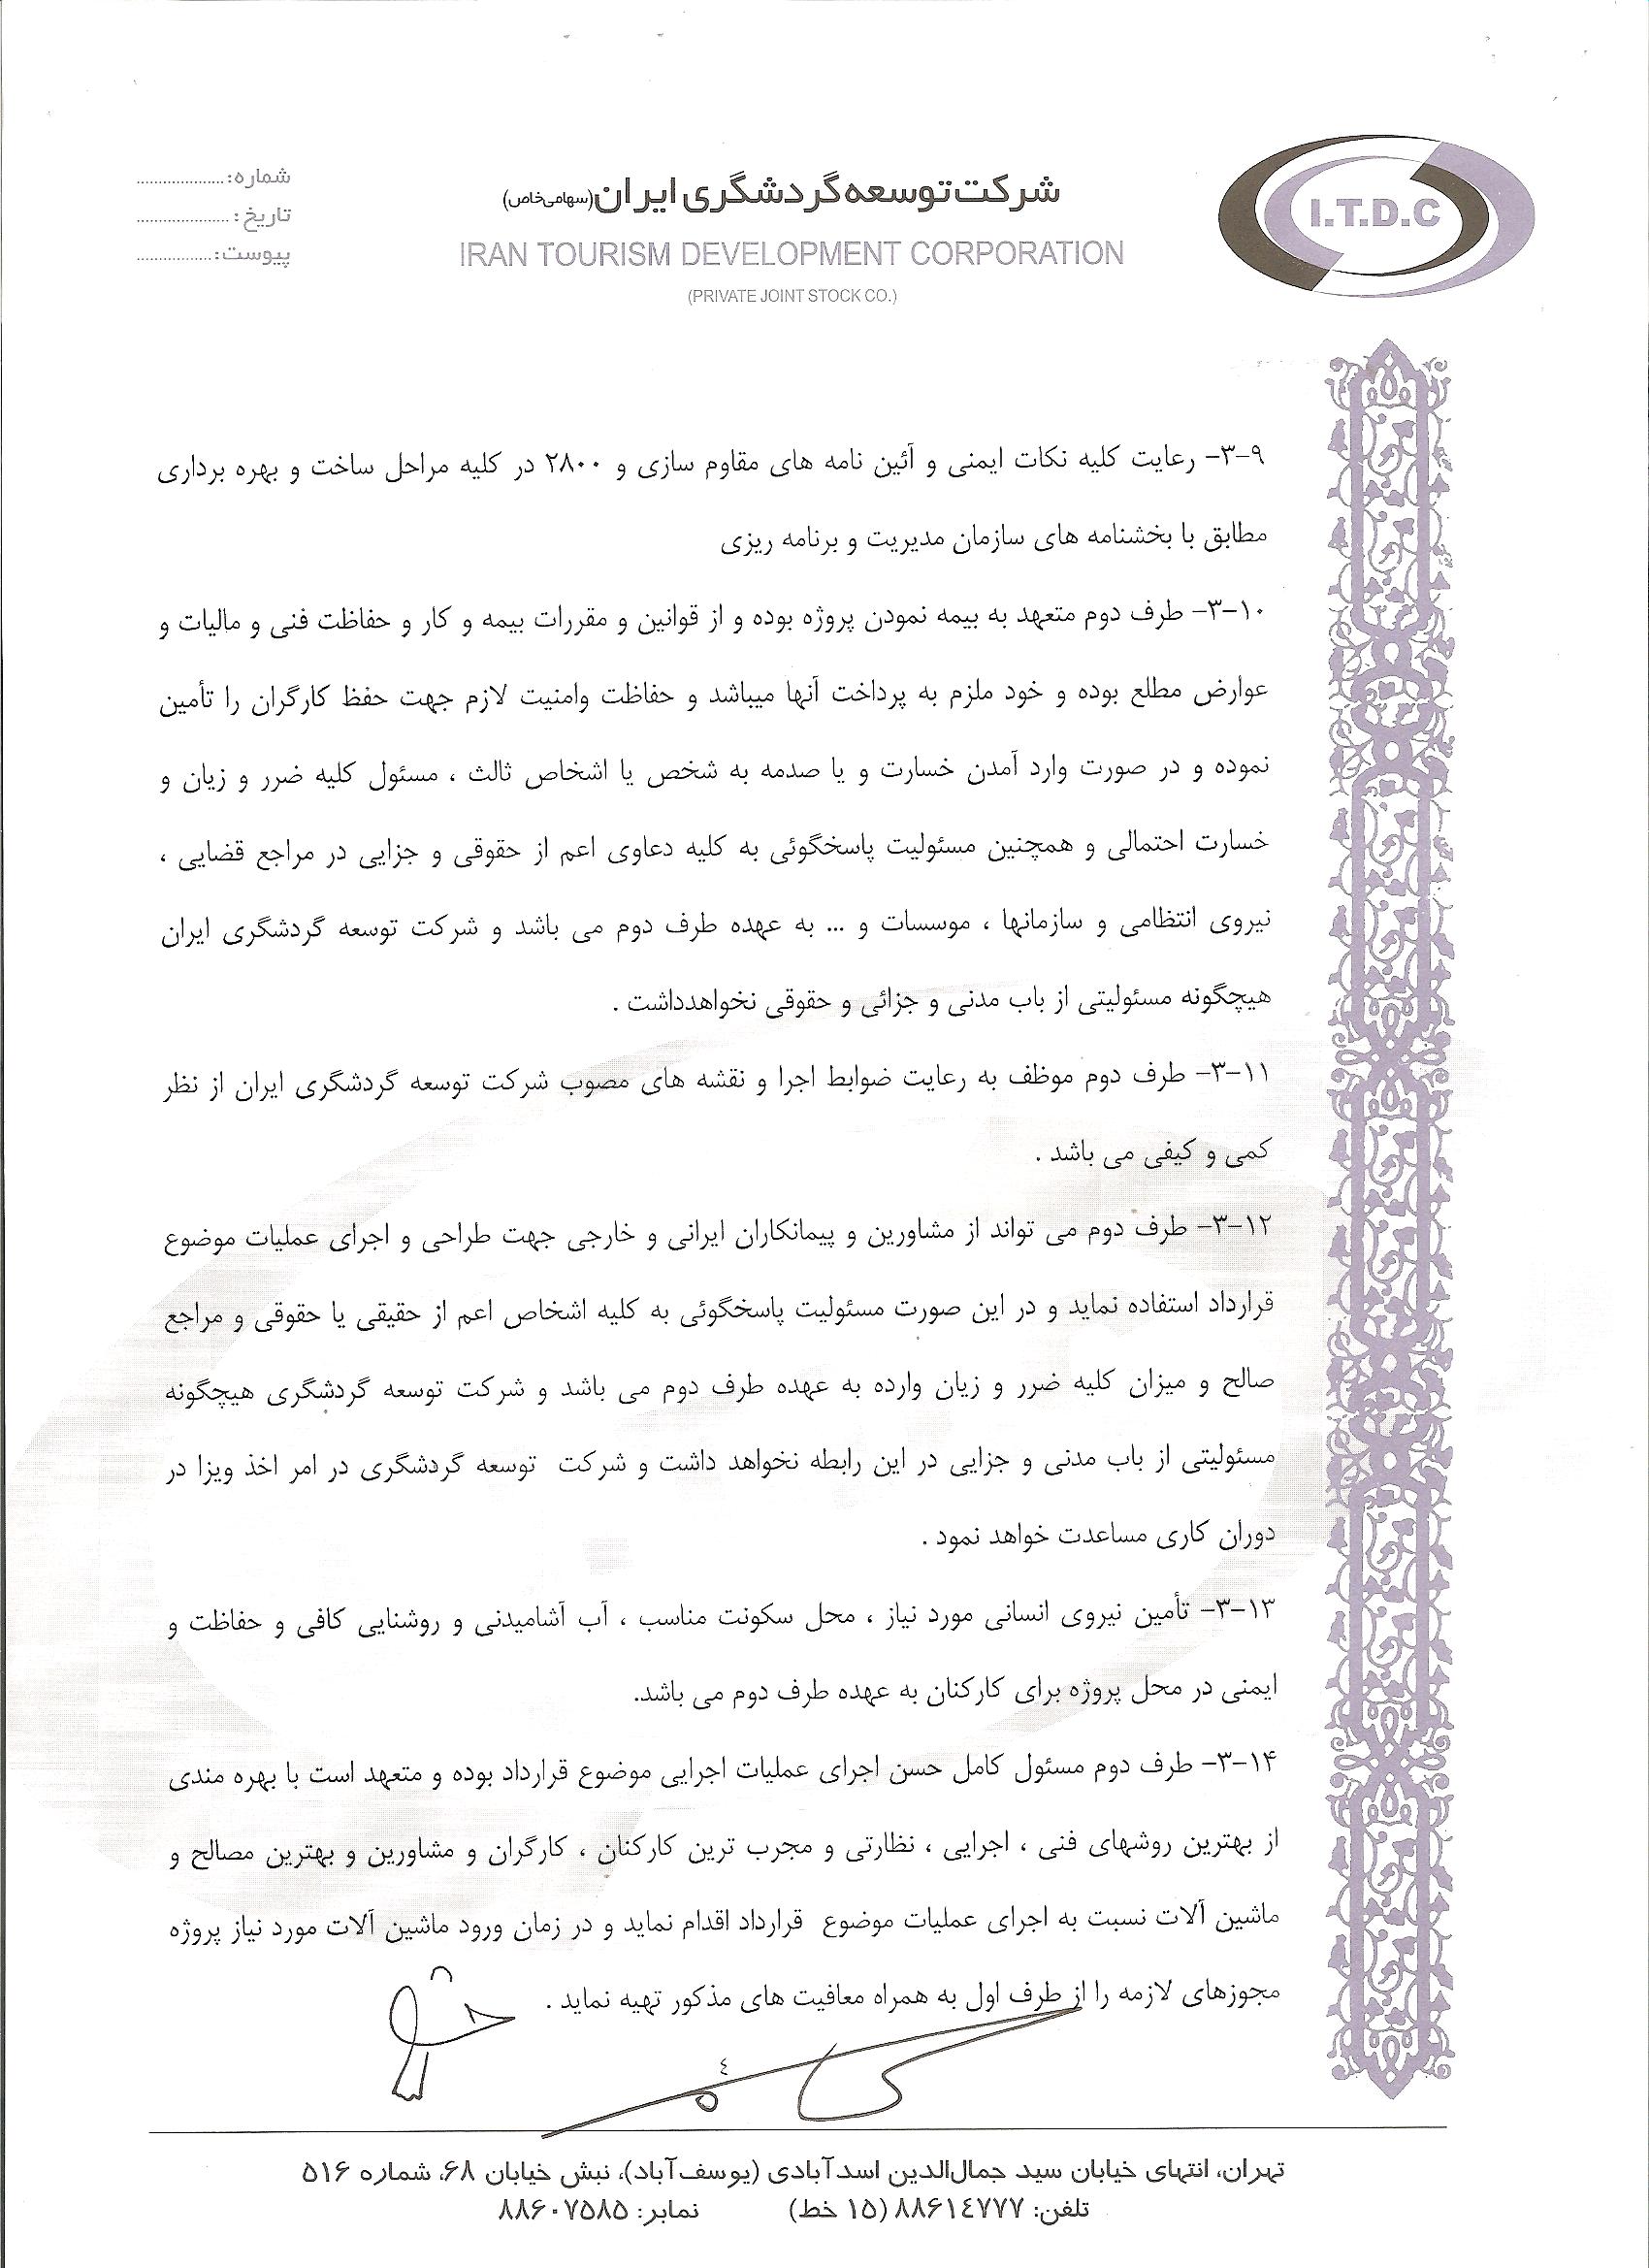 شماره:......................
تاریخ: .......................
پیوست:...................
شرکت توسعه گردشگری ایران(سهامی خاص)
IRAN TOURISM DEVELOPMENT CORPORATION
(PRIVATE JOINT STOCK CO.)
I.T.D.C
۳-۹- رعایت کلیه نکات ایمنی و آئین نامه های مقاوم سازی و ۲۸۰۰ در کلیه مراحل ساخت و بهره برداری
مطابق با بخشنامه های سازمان مدیریت و برنامه ریزی
۳-۱۰- طرف دوم متعهد به بیمه نمودن پروژه بوده و از قوانین و مقررات بیمه و کار و حفاظت فنی و مالیات و
عوارض مطلع بوده و خود ملزم به پرداخت آنها میباشد و حفاظت وامنیت لازم جهت حفظ کارگران را تأمین
نموده و در صورت وارد آمدن خسارت و یا صدمه به شخص یا اشخاص ثالث ، مسئول کلیه ضرر و زیان و
خسارت احتمالی و همچنین مسئولیت پاسخگوئی به کلیه دعاوی اعم از حقوقی و جزایی در مراجع قضایی ،
نیروی انتظامی و سازمانها ، موسسات و ... به عهده طرف دوم می باشد و شرکت توسعه گردشگری ایران
هیچگونه مسئولیتی از باب مدنی و جزائی و حقوقی نخواهدداشت .
۳-۱۱- طرف دوم موظف به رعایت ضوابط اجرا و نقشه های مصوب شرکت توسعه گردشگری ایران از نظر
کمی و کیفی می باشد .
۳-۱۲- طرف دوم می تواند از مشاورین و پیمانکاران ایرانی و خارجی جهت طراحی و اجرای عملیات موضوع
قرارداد استفاده نماید و در این صورت مسئولیت پاسخگوئی به کلیه اشخاص اعم از حقیقی یا حقوقی و مراجع
صالح و میزان کلیه ضرر و زیان وارده به عهده طرف دوم می باشد و شرکت توسعه گردشگری هیچگونه
مسئولیتی از باب مدنی و جزایی در این رابطه نخواهد داشت و شرکت توسعه گردشگری در امر اخذ ویزا در
دوران کاری مساعدت خواهد نمود .
۳-۱۳- تأمین نیروی انسانی مورد نیاز ، محل سکونت مناسب ، آب آشامیدنی و روشنایی کافی و حفاظت و
ایمنی در محل پروژه برای کارکنان به عهده طرف دوم می باشد.
۳-۱۴- طرف دوم مسئول کامل حسن اجرای عملیات اجرایی موضوع قرارداد بوده و متعهد است با بهره مندی
از بهترین روشهای فنی ، اجرایی ، نظارتی و مجرب ترین کارکنان ، کارگران و مشاورین و بهترین مصالح و
ماشین آلات نسبت به اجرای عملیات موضوع قرارداد اقدام نماید و در زمان ورود ماشین آلات مورد نیاز پروژه
مجوزهای لازمه را از طرف اول به همراه معافیت های مذکور تهیه نماید .
٤
تهران، انتهای خیابان سید جمال‌الدین اسدآبادی (یوسف‌آباد)، نبش خیابان ۶۸، شماره ۵۱۶
تلفن: ۸۸۶۱٤۷۷۷ (۱۵ خط) نمابر: ۸۸۶۰۷۵۸۵